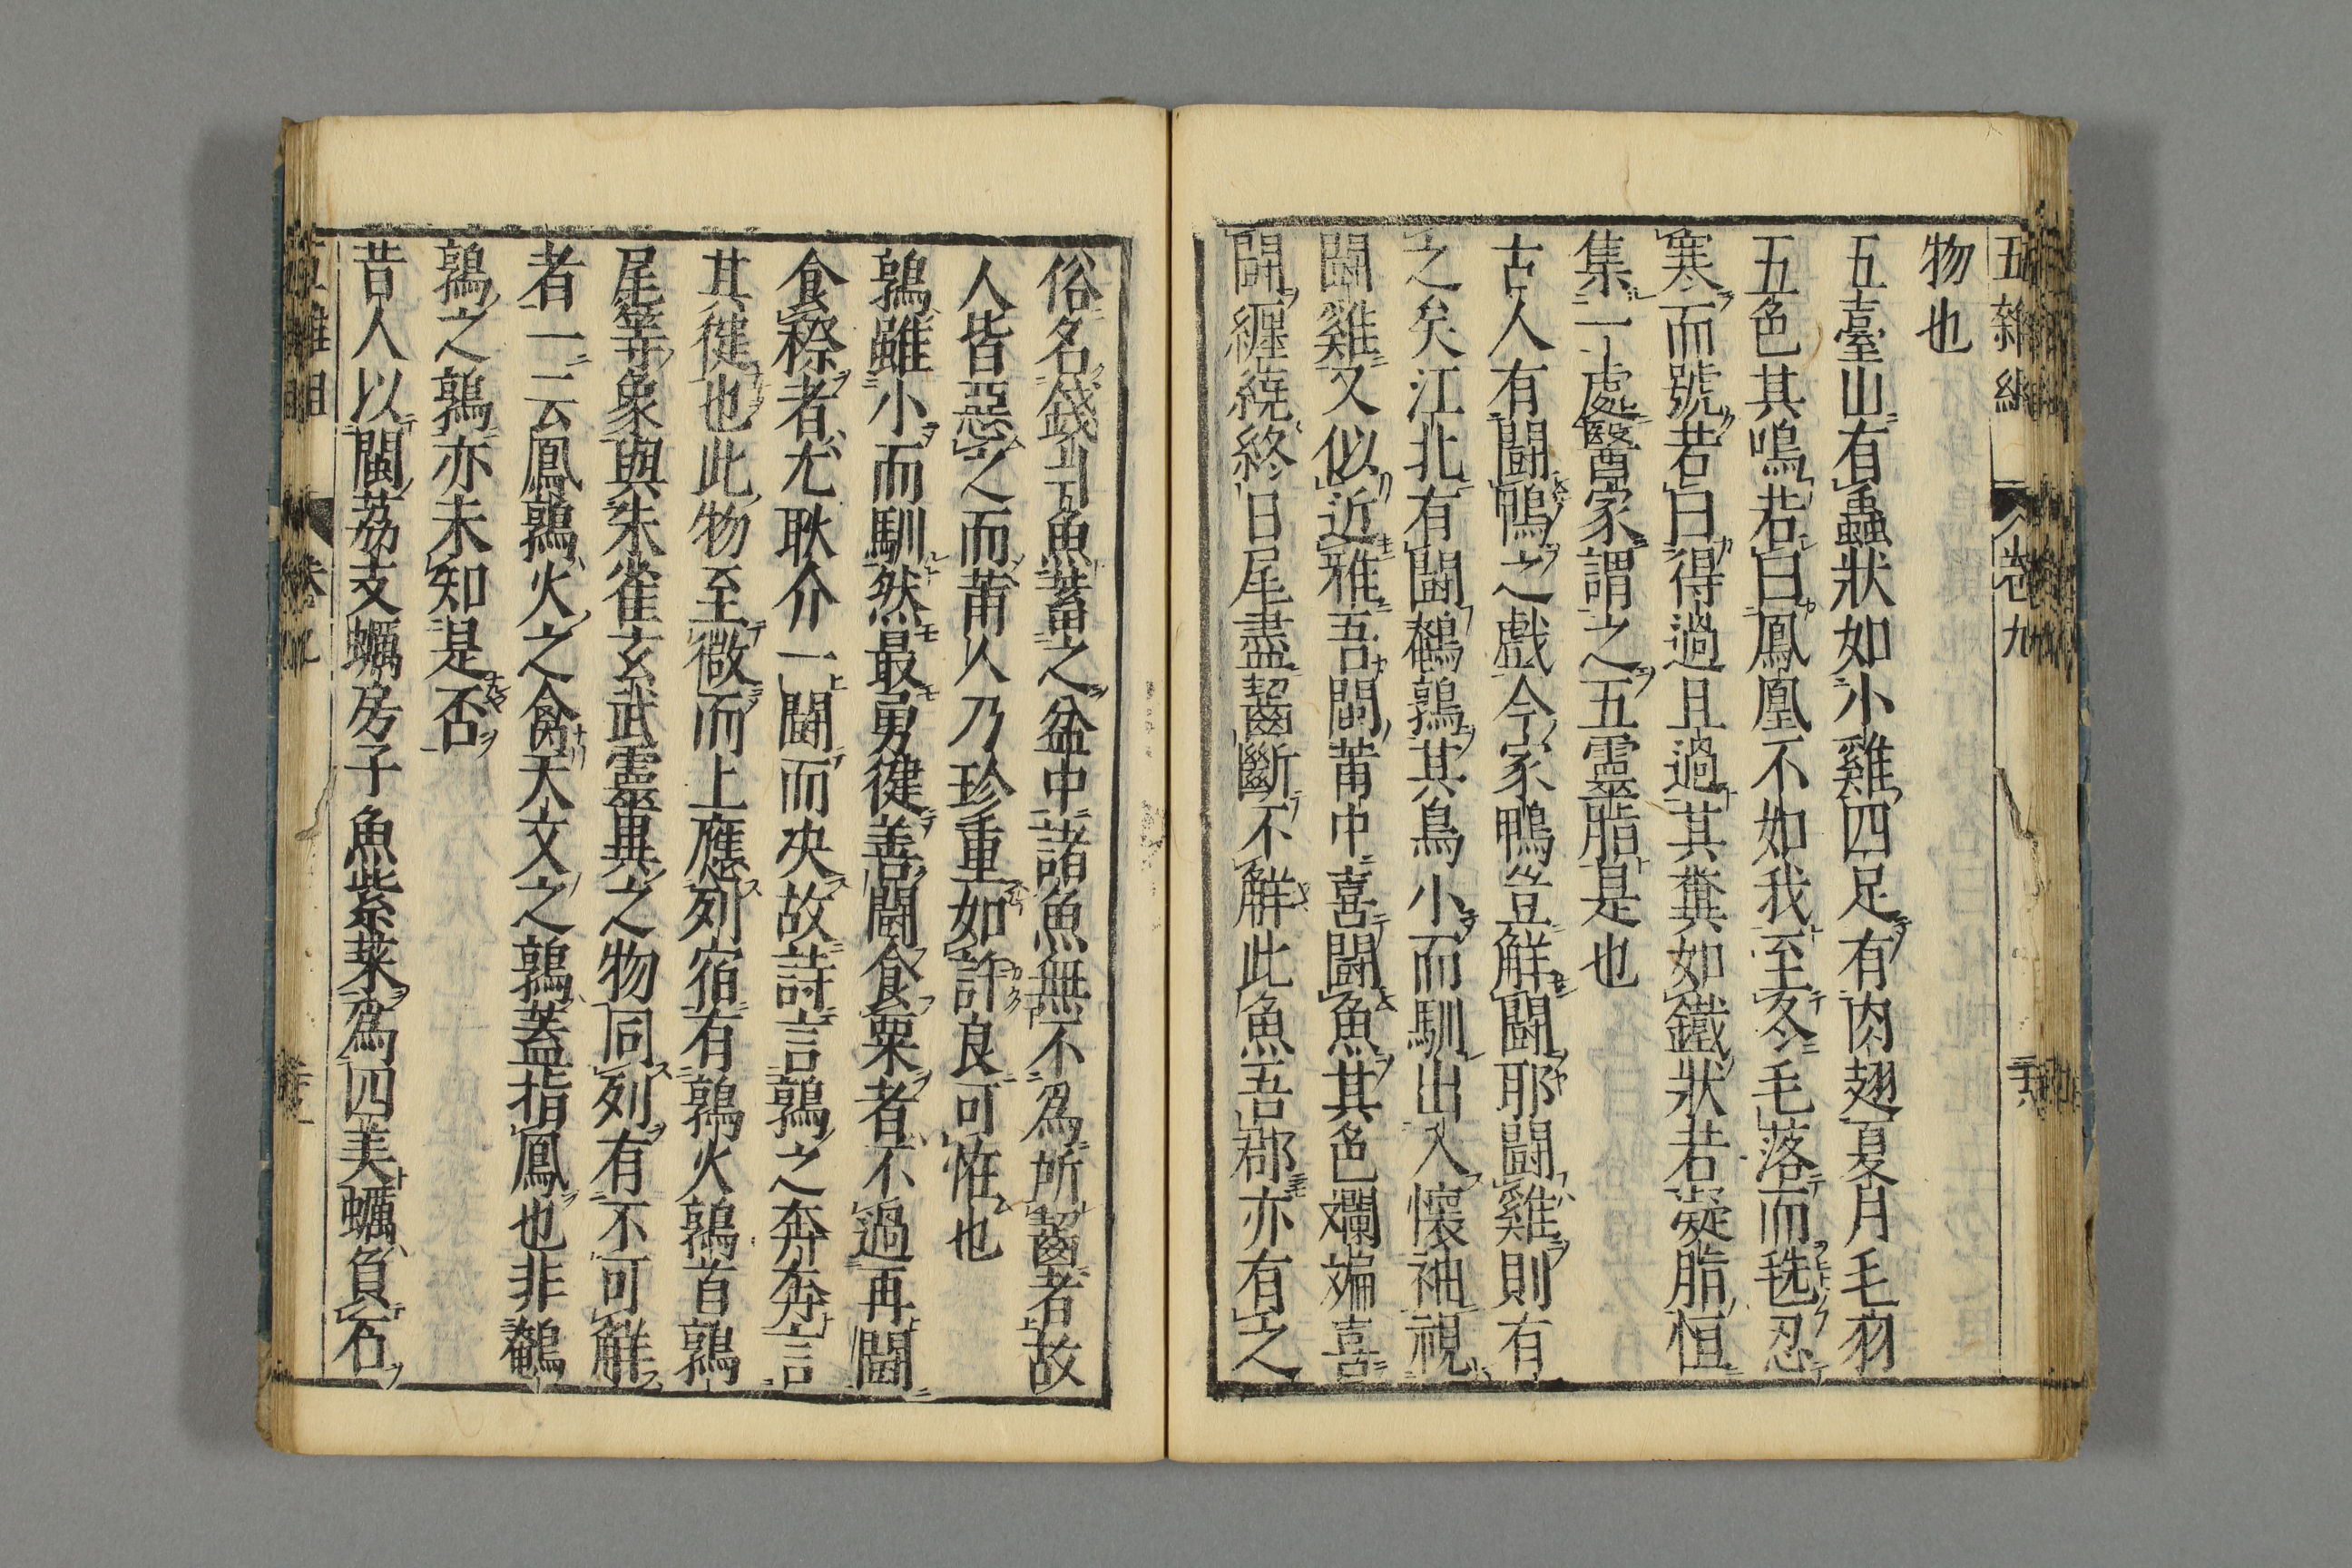 五雜組 卷九 三六
物也
五臺山有蟲狀如小雞四足有肉翅夏月毛羽
五色其鳴若曰鳳凰不如我至冬毛落而毨忍
寒而號若曰得過且過其糞如鐵狀若凝脂恒
集一處醫家謂之五靈脂是也
古人有鬪鴨之戲今家鴨豈解鬪耶鬪雞則有
之矣江北有鬪鵪鶉其鳥小而馴出入懷袖視
鬪雞又似近雅吾閩莆中喜鬪魚其色斕斒喜
鬪纏繞終日尾盡齧斷不解此魚吾郡亦有之
俗名錢爿魚蓄之盆中諸魚無不爲所齧者故
人皆惡之而莆人乃珍重如許良可恠也
鶉雖小而馴然最勇健善鬪食粟者不過再鬪
食䅟者尤耿介一鬪而决故詩言鶉之奔奔言
其健也此物至微而上應列宿有鶉火鶉首鶉
尾等象與朱雀玄武靈異之物同列有不可解
者一云鳳鶉火之禽天文之鶉蓋指鳳也非鵪
鶉之鶉亦未知是否
昔人以閩荔支蠣房子魚紫菜爲四美蠣負石